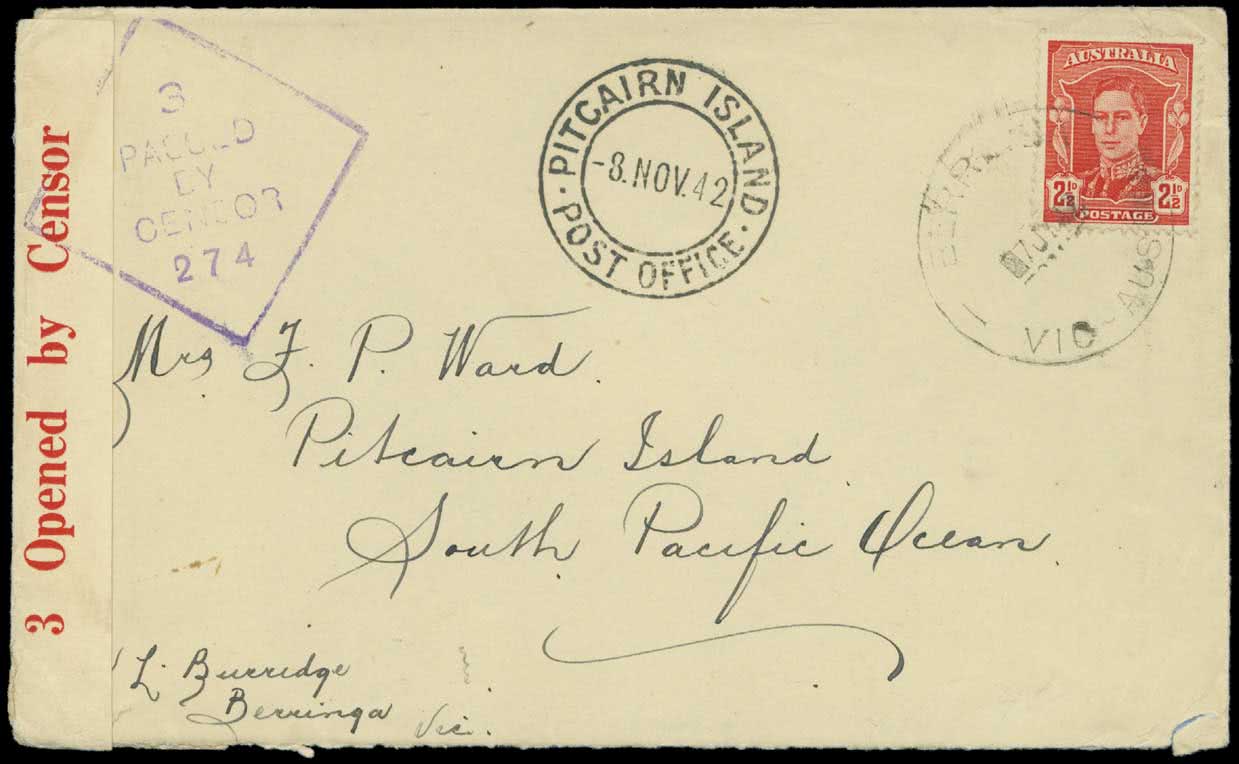 3 Opened by Censor
3
PASSED
BY
CENSOR
274
PITCAIRN ISLAND
-8.NOV.42
POST OFFICE
AUSTRALIA
2½D 2½D
POSTAGE
VIC-AUST
Mrs F. P. Ward.
Pitcairn Island
South Pacific Ocean
L. Burridge
Berringa Vic.